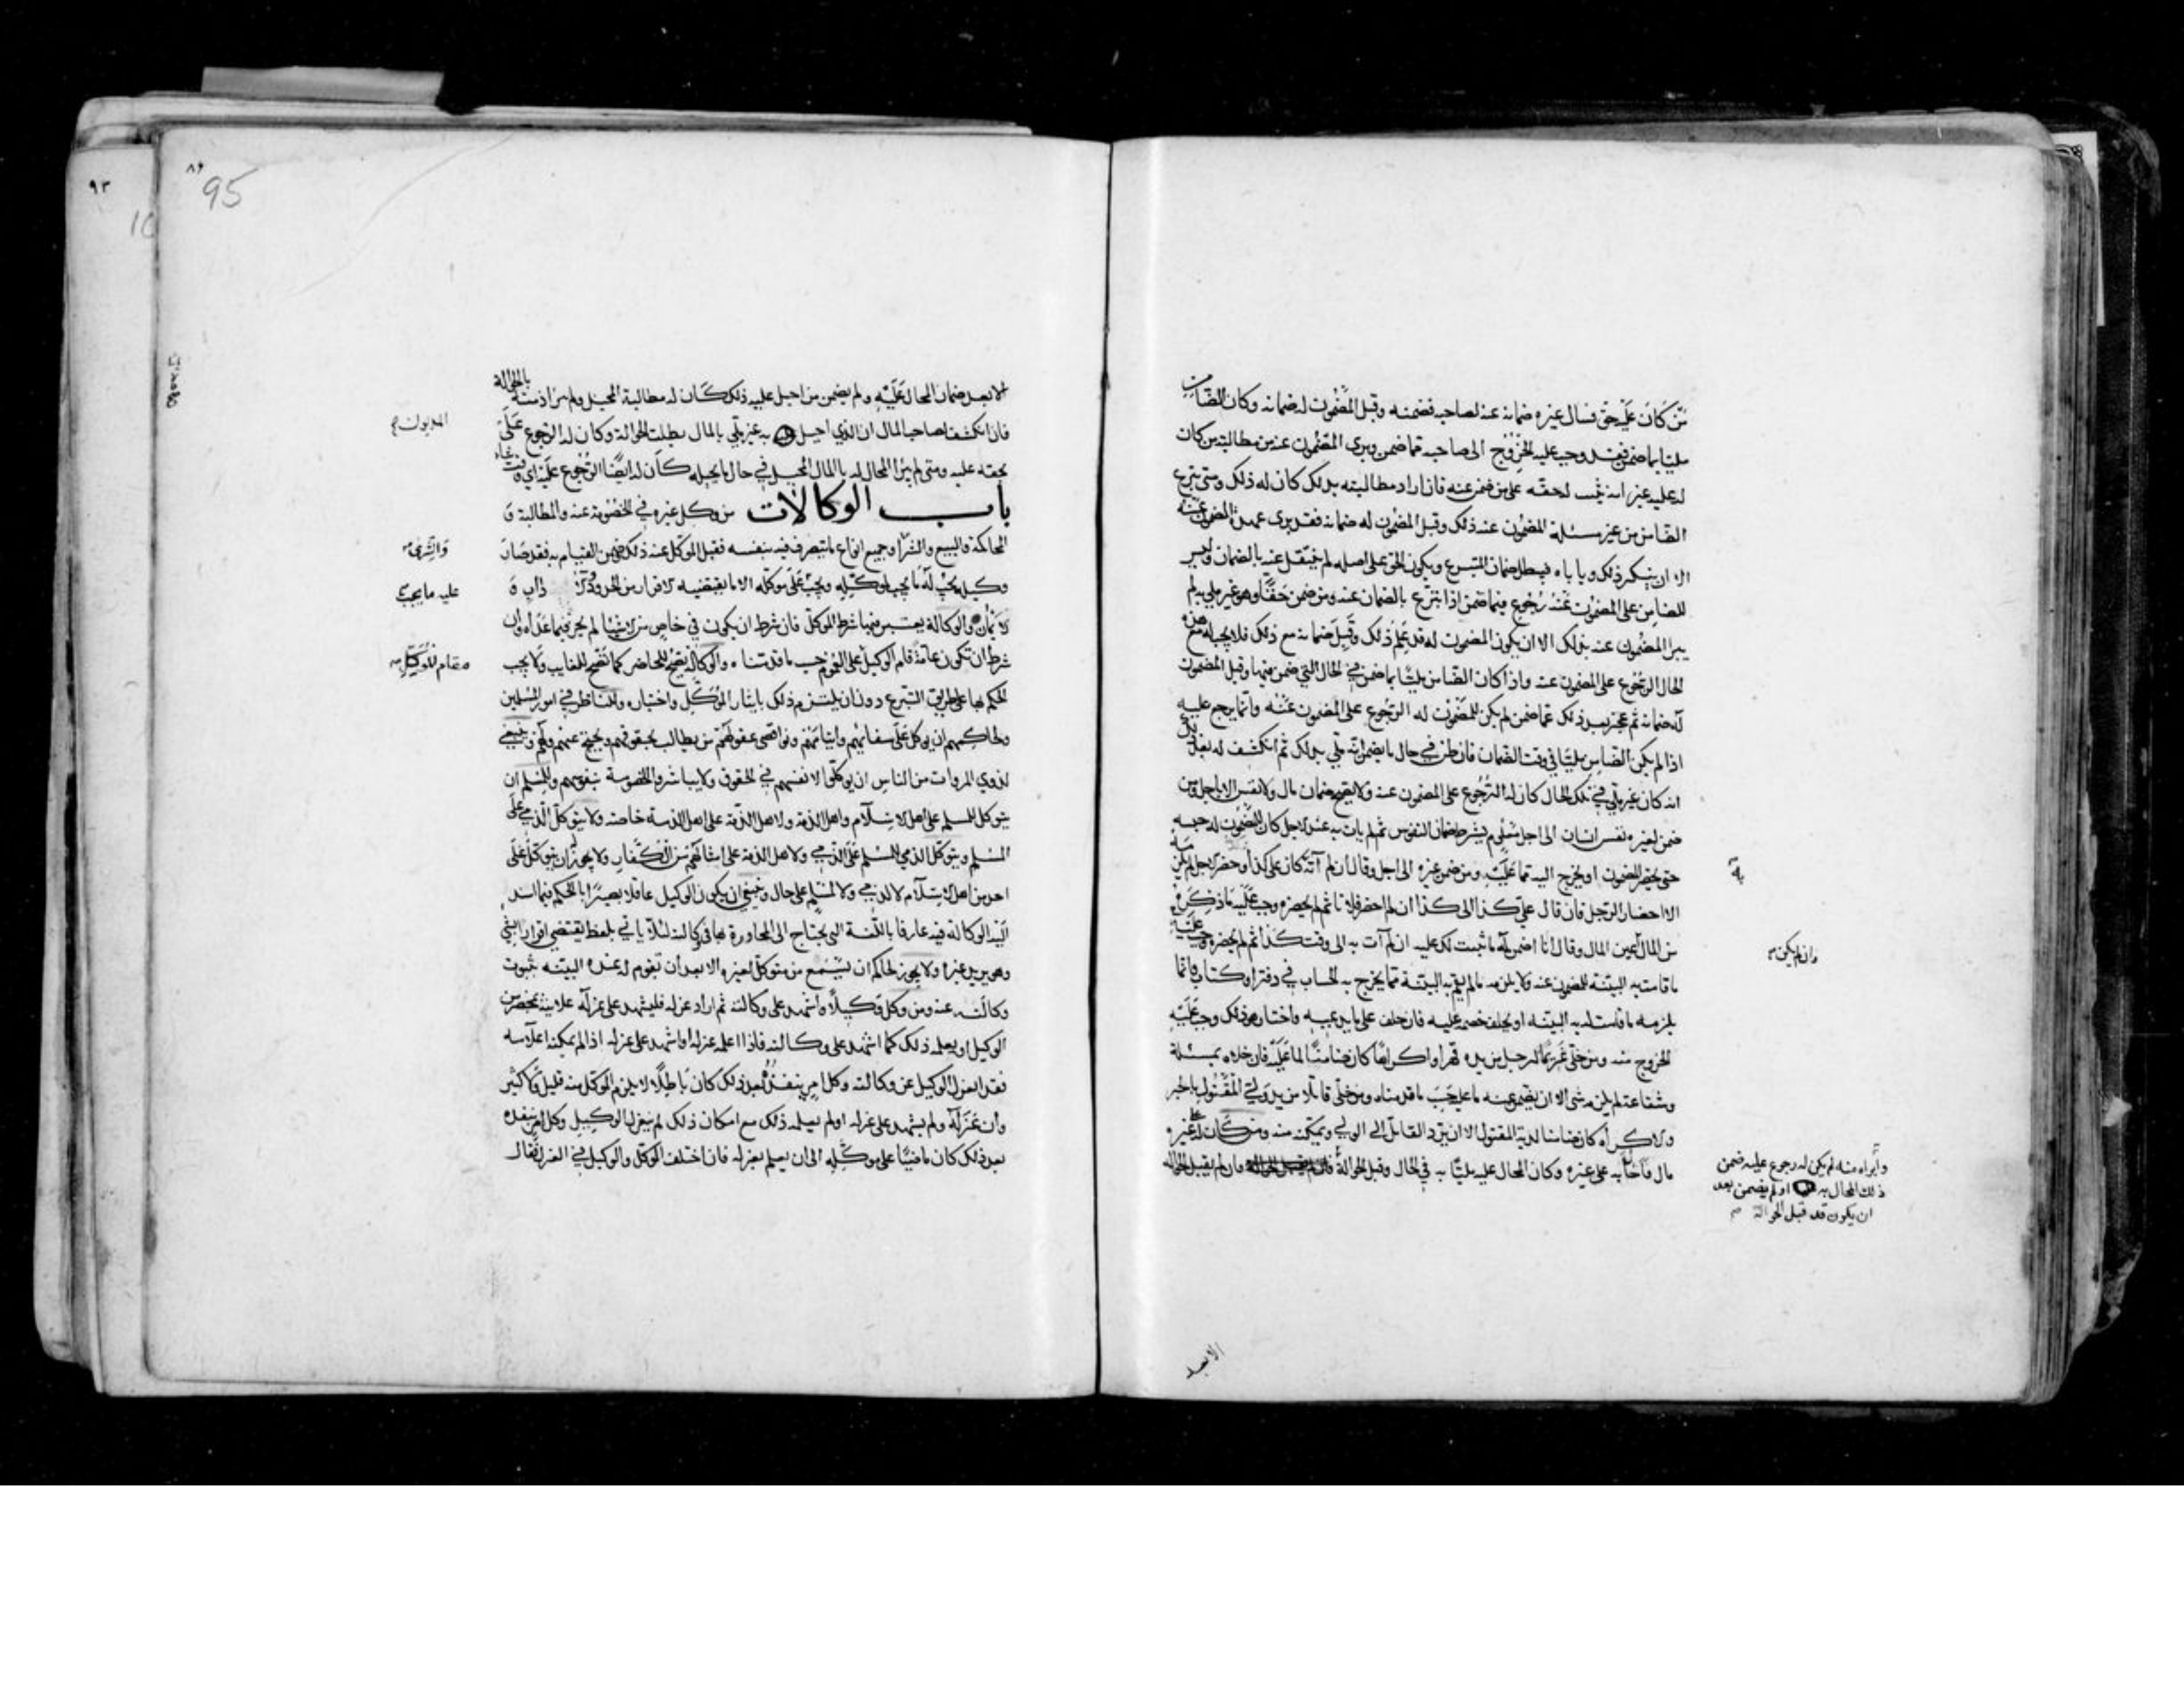 من كان عليه حق فسال غيره ضمانه عنه لصاحبه فضمنه وقبل المضمون له ضمانه وكان الضامن
مليئا بما ضمن فقد وجب عليه الخروج الى صاحبه مما ضمن وبرى المضمون عنه من مطالبة من كان
له عليه غير انه يجب لحقه على من ضمن عنه فان اراد مطالبته بذلك كان له ذلك ومتى تبرع
الضامن من غير مسئلة المضمون عنه ذلك وقبل المضمون له ضمانه فقد برى عهدة المضمون عنه
الا ان ينكر ذلك ويا باه فيبطل ضمان المتبرع ويكون الحق على اصله لم ينتقل عنه بالضمان وليس
للضامن على المضمون عنه رجوع فيما ضمن اذا تبرع بالضمان عنه ومن ضمن حقا وهو غير ملي به لم
يبرا المضمون عنه بذلك الا ان يكون المضمون له قد علم ذلك وقبل ضمانه مع ذلك فلا يجب له مع هذه
الحال الرجوع على المضمون عنه واذا كان الضامن مليئا بما ضمن في الحال التي ضمن فيها وقبل المضمون
له ضمانه ثم عجز بعد ذلك عما ضمن لم يكن للمضمون له الرجوع على المضمون عنه وانما يرجع عليه
اذا لم يكن الضامن مليئا في وقت الضمان فان ظن في حال ما يضمن انه ملي بذلك ثم انكشف له بعد ذلك
انه كان غير ملي في تلك الحال كان له الرجوع على المضمون عنه ولا يصح ضمان مال ولا نفس الا باجل ومن
ضمن لغيره نفس انسان الى اجل معلوم بشرط ضمان النفوس ثم لم يات به عند الاجل كان للمضمون له حبسه
حتى يحضر المضمون او يخرج اليه مما عليه ومن ضمن غيره الى اجل وقال ان لم آت به كان علي كذا وحضر الاجل لم يكن
الا احضار الرجل فان قال علي كذا الى كذا ان لم احضر فلانا ثم لم يحضره وجب عليه ما ذكره
من المال ثم قال انا اضمن له ما ثبت لك عليه ان لم آت به الى وقت كذا ثم لم يحضره وجب عليه
ما قامت به البينة للمضمون عنه ولا يلزمه ما لم يقم به البينة مما يخرج به الحساب في دفتر او كتاب وانما
يلزمه ما قامت له به البينه او يحلف خصمه عليه فان حلف على ما يدعيه واختار هو ذلك وجب عليه
الخروج منه ومن خلى غريما لرجل من يده قهرا واكراها كان ضامنا لما عليه فان خلاه بمسئلة
وشفاعة لم يلزمه شي الا ان يضمن عنه ما عليه حسب ما قدمناه ومن خلى قاتلا من يد ولي المقتول بالجبر
والاكراه كان ضامنا لدية المقتول الا ان يرد القاتل الى الولي ويمكنه منه ومن كان له على غيره
مال فاحاله به على غيره وكان المحال عليه مليئا به في الحال وقبل الحوالة وان لم يقبل الحواله
وان لم يكن
وابراه منه لم يكن له رجوع عليه ضمن
ذلك المحال به او لم يضمن بعد
ان يكون قد قبل الحوالة
الا بعد
95
٩٣
الا بعد ضمان المحال عليه ولم يضمن من احيل عليه ذلك كان له مطالبة المحيل ولم تبرا ذمته بالحوالة
فان انكشف لصاحب المال ان الذي احيل به غير ملي بالمال بطلت الحوالة وكان له الرجوع على
المديون
بحقه عليه ومتى لم يبرا المحال له بالمال المحيل في حال ما يحيله كان له ايضا الرجوع عليه اي وقت شاء
باب الوكالات من وكل غيره في الخصومة عنه والمطالبة و
المحاكمة والبيع والشرا وجميع انواع ما يتصرف فيه بنفسه فقبل الموكل عنه ذلك وضمن القيام به فقد صار
وكيله يجب له ما يجب لموكله ويجب على موكله الا ما يقتضيه الاقرار من الحدود والاداب و
عليه ما يجب
الايمان والوكالة يعتبر فيها شرط الموكل فان شرط ان يكون في خاص من الاشيا لم يجز فيما عداه وان
شرط ان تكون عامة قام الوكيل على العموم حسب ما قدمناه والوكالة تصح للحاضر كما تصح للغايب ولا يجب
مقام الموكل
الحكم بها على طريق التبرع دون ان يلتزم ذلك بايثار الموكل واختياره وللناظر في امور المسلمين
ولحاكمهم ان يوكل على سفهائهم وايتامهم ونواقصي عقولهم من يطالب بحقوقهم ويحتج عنهم ولهم وينبغي
لذوي المروات من الناس ان يوكلوا لانفسهم في الحقوق ولا يباشروا الخصومة بنفوسهم وللمسلم ان
يتوكل للمسلم على اهل الاسلام واهل الذمة ولاهل الذمة على اهل الذمة خاصة ولا يتوكل للذمي على
المسلم ويتوكل الذمي للمسلم على الذمي ولاهل الذمة على امثالهم من الكفار ولا يجوز ان يتوكل على
احد من اهل الاسلام لا لذمي ولا لمسلم على حال وينبغي ان يكون الوكيل عاقلا بصيرا بالحكم فيما اسند
اليه الوكالة فيه عارفا باللغة التي يحتاج الى المحاورة بها في وكالته لئلا ياتي بلفظ يقتضي اقرارا بشي
وهو يريد غيره ولا يجوز لحاكم ان يسمع من متوكل لغيره الا بعد ان تقوم له عنده البينه بثبوت
وكالته عنه ومن وكل وكيلا واشهد على وكالته ثم اراد عزله فليشهد على عزله علانية بمحضر من
الوكيل او يعلمه ذلك كما اشهد على وكالته فاذا اعلمه عزله او اشهد على عزله اذا لم يمكنه اعلامه
فقد انعزل الوكيل عن وكالته وكل امر ينفذه بعد ذلك كان باطلا لا يلزم الموكل منه قليل ولا كثير
وان عزله ولم يشهد على عزله او لم يعلمه ذلك مع امكان ذلك لم ينعزل الوكيل وكل امر ينفذه
بعد ذلك كان ماضيا على موكله الى ان يعلم بعزله فان اختلف الموكل والوكيل في العزل فقال